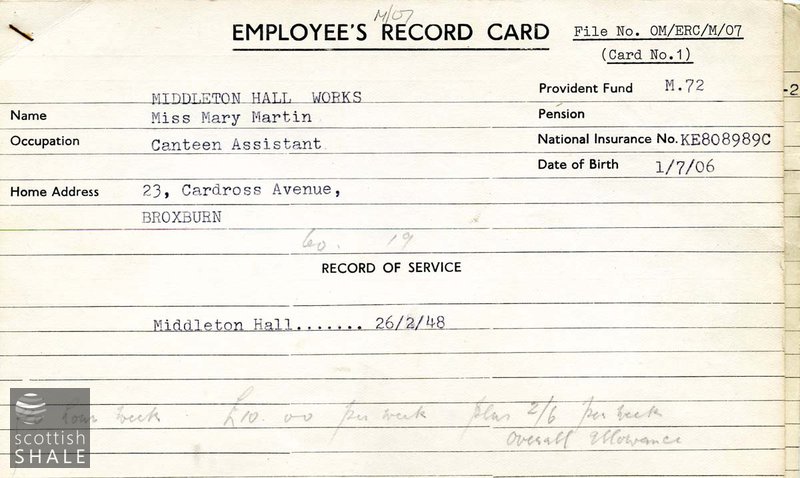 M/07
EMPLOYEE'S RECORD CARD
File No. OM/ERC/M/07
(Card No.1)
Provident Fund M.72
-2
MIDDLETON HALL WORKS
Name Miss Mary Martin
Pension
Occupation Canteen Assistant
National Insurance No. KE808989C
Date of Birth 1/7/06
Home Address 23, Cardross Avenue,
BROXBURN
60. 19
RECORD OF SERVICE
Middleton Hall....... 26/2/48
hour week. £10.00 per week plus 2/6 per week
Overall Allowance
scottish
SHALE